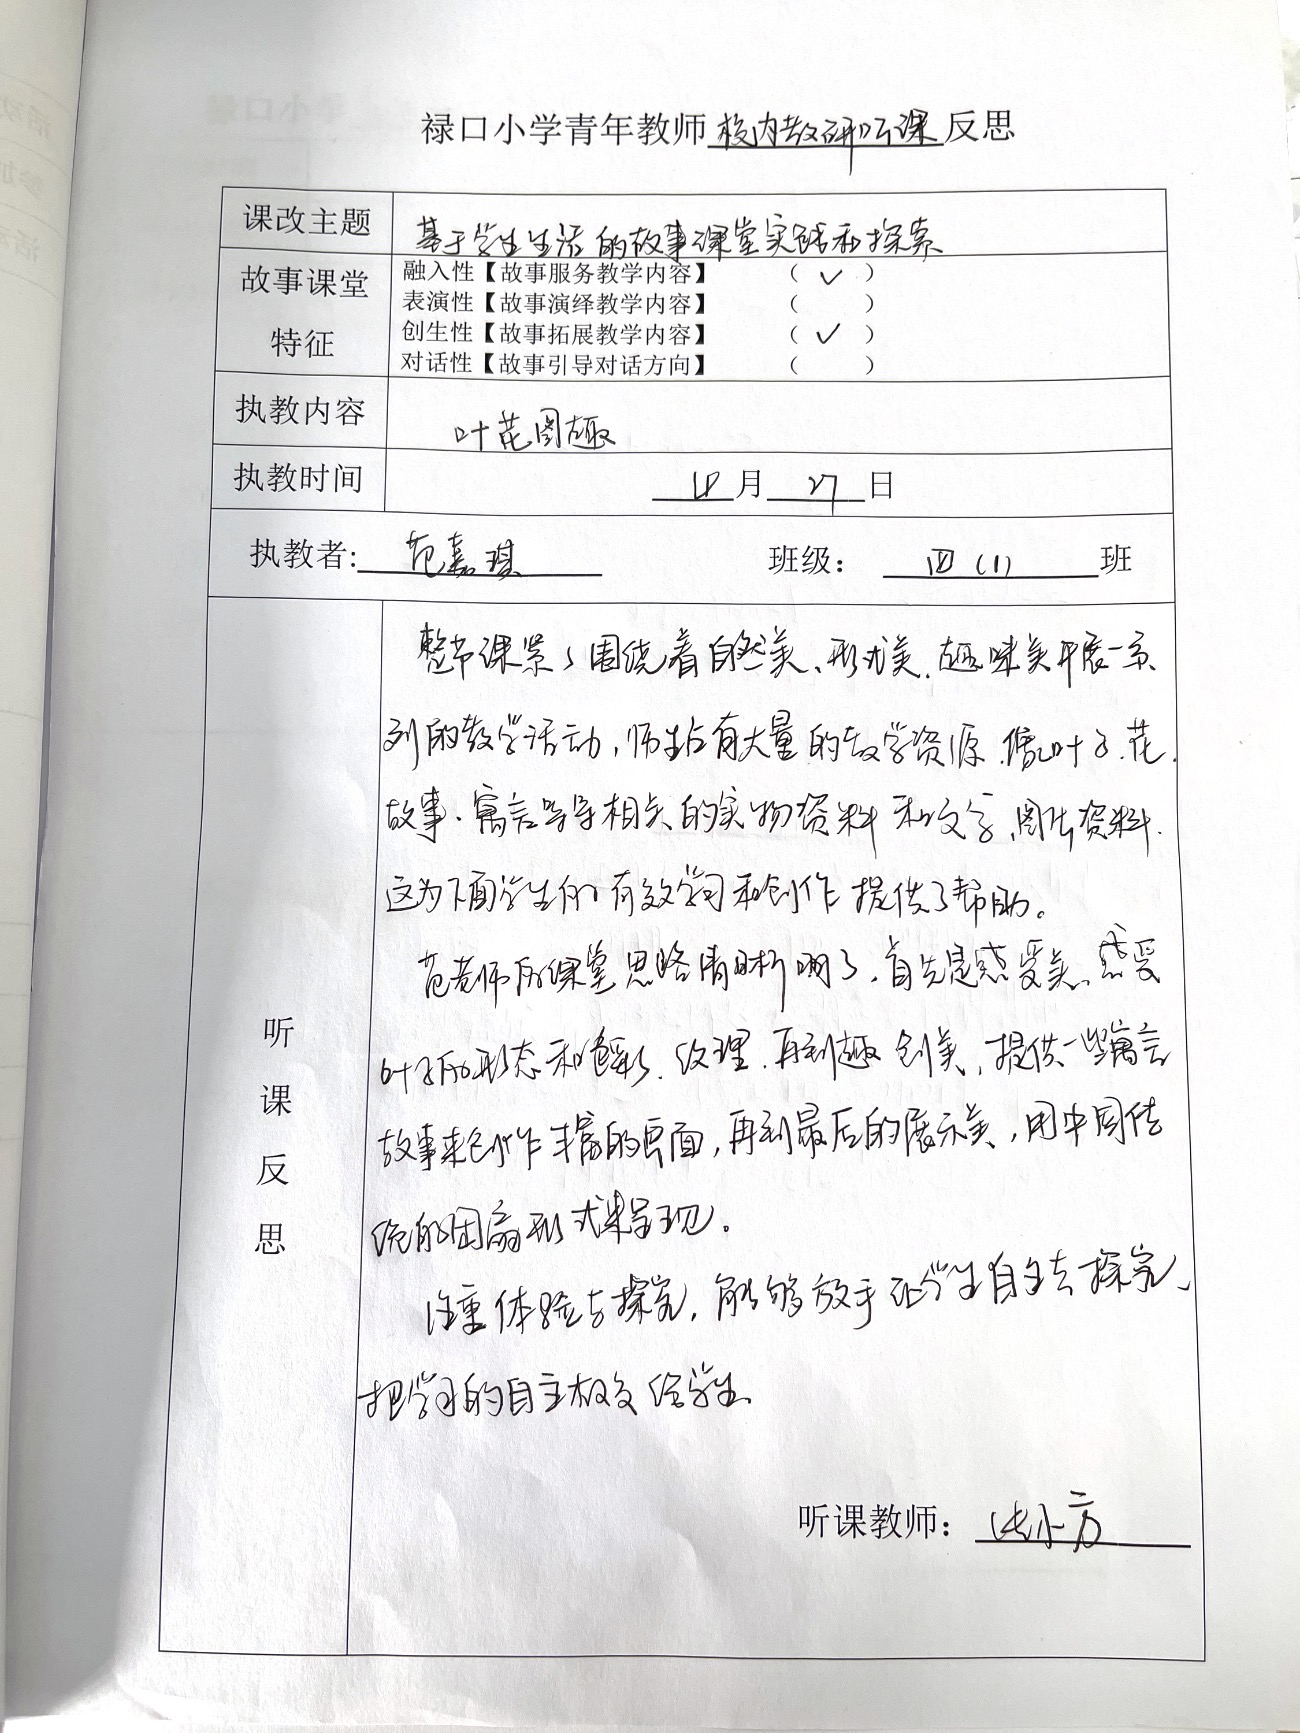 禄口小学青年教师校内教研听课反思
课改主题 基于学生生活的故事课堂实践和探索
故事课堂特征
融入性【故事服务教学内容】 （ ✓ ）
表演性【故事演绎教学内容】 （ ）
创生性【故事拓展教学内容】 （ ✓ ）
对话性【故事引导对话方向】 （ ）
执教内容 叶花图趣
执教时间 10月27日
执教者: 范嘉琪 班级： 四（1）班
听课反思
整节课紧紧围绕着自然美、形式美、趣味美开展一系
列的教学活动，师生占有大量的教学资源、像叶子、花、
故事、寓言等等相关的实物资料和文字、图片资料，
这为下面学生的有效学习和创作提供了帮助。
范老师的课堂思路清晰明了，首先是感受美、感受
叶子的形态和色彩、纹理，再到趣创美，提供一些寓言
故事来创作丰富的画面，再到最后的展示美，用中国传
统的团扇形式来呈现。
注重体验与探究，能够放手让学生自主去探究、
把学习的自主权交给学生。
听课教师： 小方